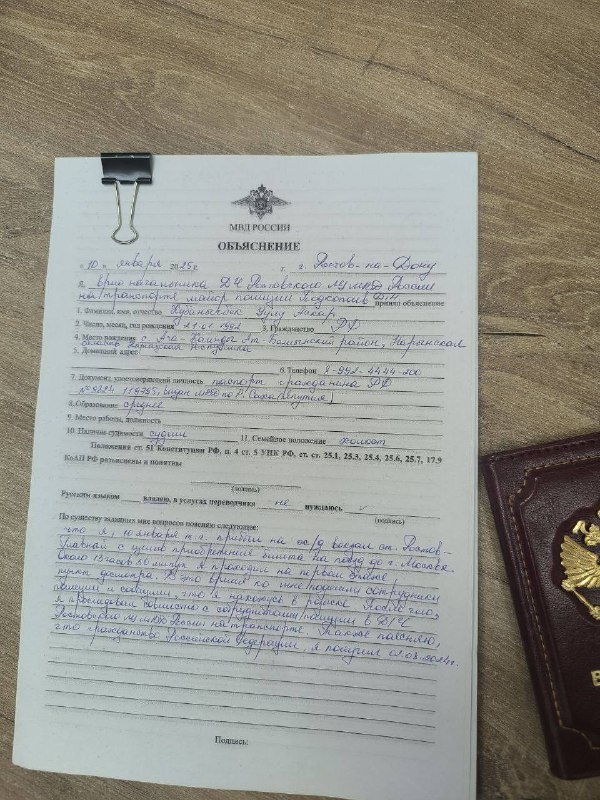 МВД РОССИИ
ОБЪЯСНЕНИЕ
"10" января 2025 г. г. Ростов-на-Дону
Я, Врио начальника ДЧ Ростовского ЛУ МВД России
на транспорте майор полиции принял объяснение
1. Фамилия, имя, отчество Кубанычбек Уулу
2. Число, месяц, год рождения 21.01 3. Гражданство РФ
4. Место рождения с. Ача-Каинды Ат-Башынский район, Нарынская
5. Домашний адрес
6. Телефон 8-992-4444-200
7. Документ, удостоверяющий личность паспорт гражданина РФ
выдан МВД по Р. Саха (Якутия)
8. Образование среднее
9. Место работы, должность
10. Наличие судимости судим 11. Семейное положение холост
Положения ст. 51 Конституции РФ, п. 4 ст. 5 УПК РФ, ст. ст. 25.1, 25.3, 25.4, 25.6, 25.7, 17.9
КоАП РФ разъяснены и понятны
(подпись)
Русским языком владею, в услугах переводчика не нуждаюсь v
(подпись)
По существу заданных мне вопросов поясняю следующее:
что я, 10 января т.г. прибыл на ж/д вокзал ст. Ростов-
Главной с целью приобретения билета на поезд до г. Москва.
Около 13 часов 50 минут я проходил на первом этаже
пункт досмотра. В это время ко мне подошли сотрудники
полиции и сообщили, что я нахожусь в розыске. После чего,
я проследовал совместно с сотрудниками полиции в ДЧ
Ростовского ЛУ МВД России на транспорте. Также поясняю,
что гражданство Российской Федерации, я получил 2024г.
Подпись: